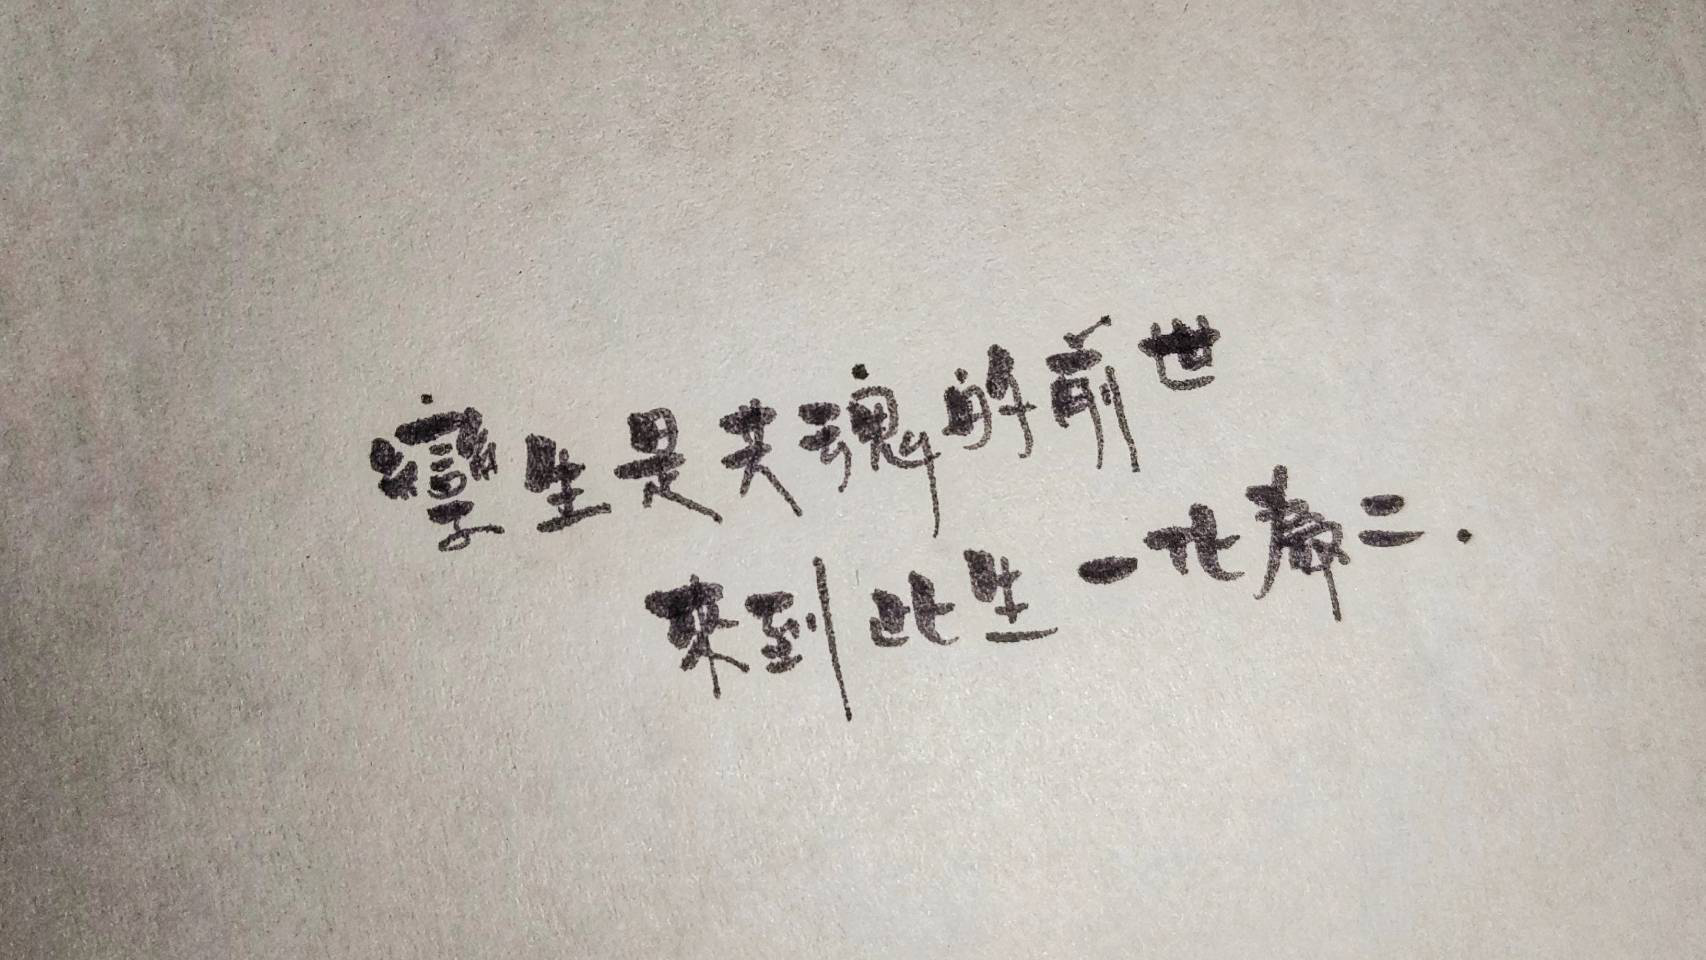 孿生是失魂的前世
來到此生一比為二.